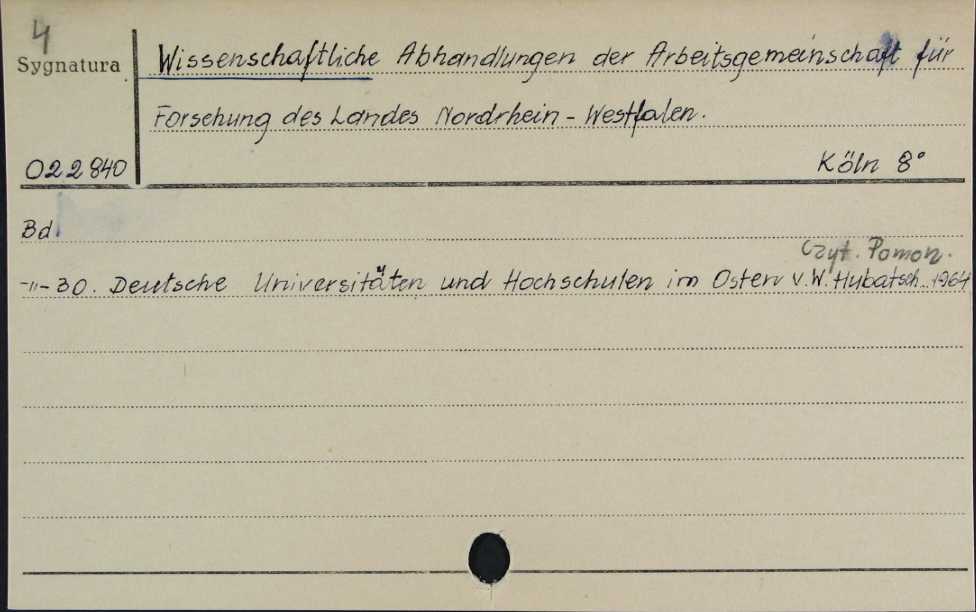 4
Sygnatura
Wissenschaftliche Abhandlungen der Arbeitsgemeinschaft für
Forschung des Landes Nordrhein-Westfalen.
022840
Köln 8°
Bd.
Czyt. Pomon.
-"-30. Deutsche Universitäten und Hochschulen im Osten v. W. Hubatsch. 1964